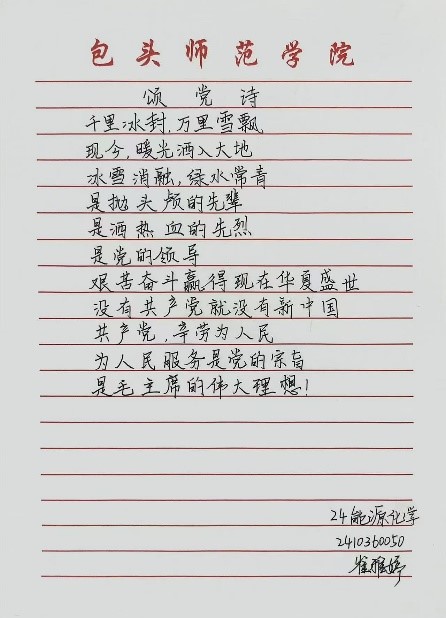 包头师范学院
颂党诗
千里冰封,万里雪飘
现今,暖光洒入大地
冰雪消融,绿水常青
是抛头颅的先辈
是洒热血的先烈
是党的领导
艰苦奋斗赢得现在华夏盛世
没有共产党就没有新中国
共产党,辛劳为人民
为人民服务是党的宗旨
是毛主席的伟大理想!
24能源化学
2410360050
崔雅婷